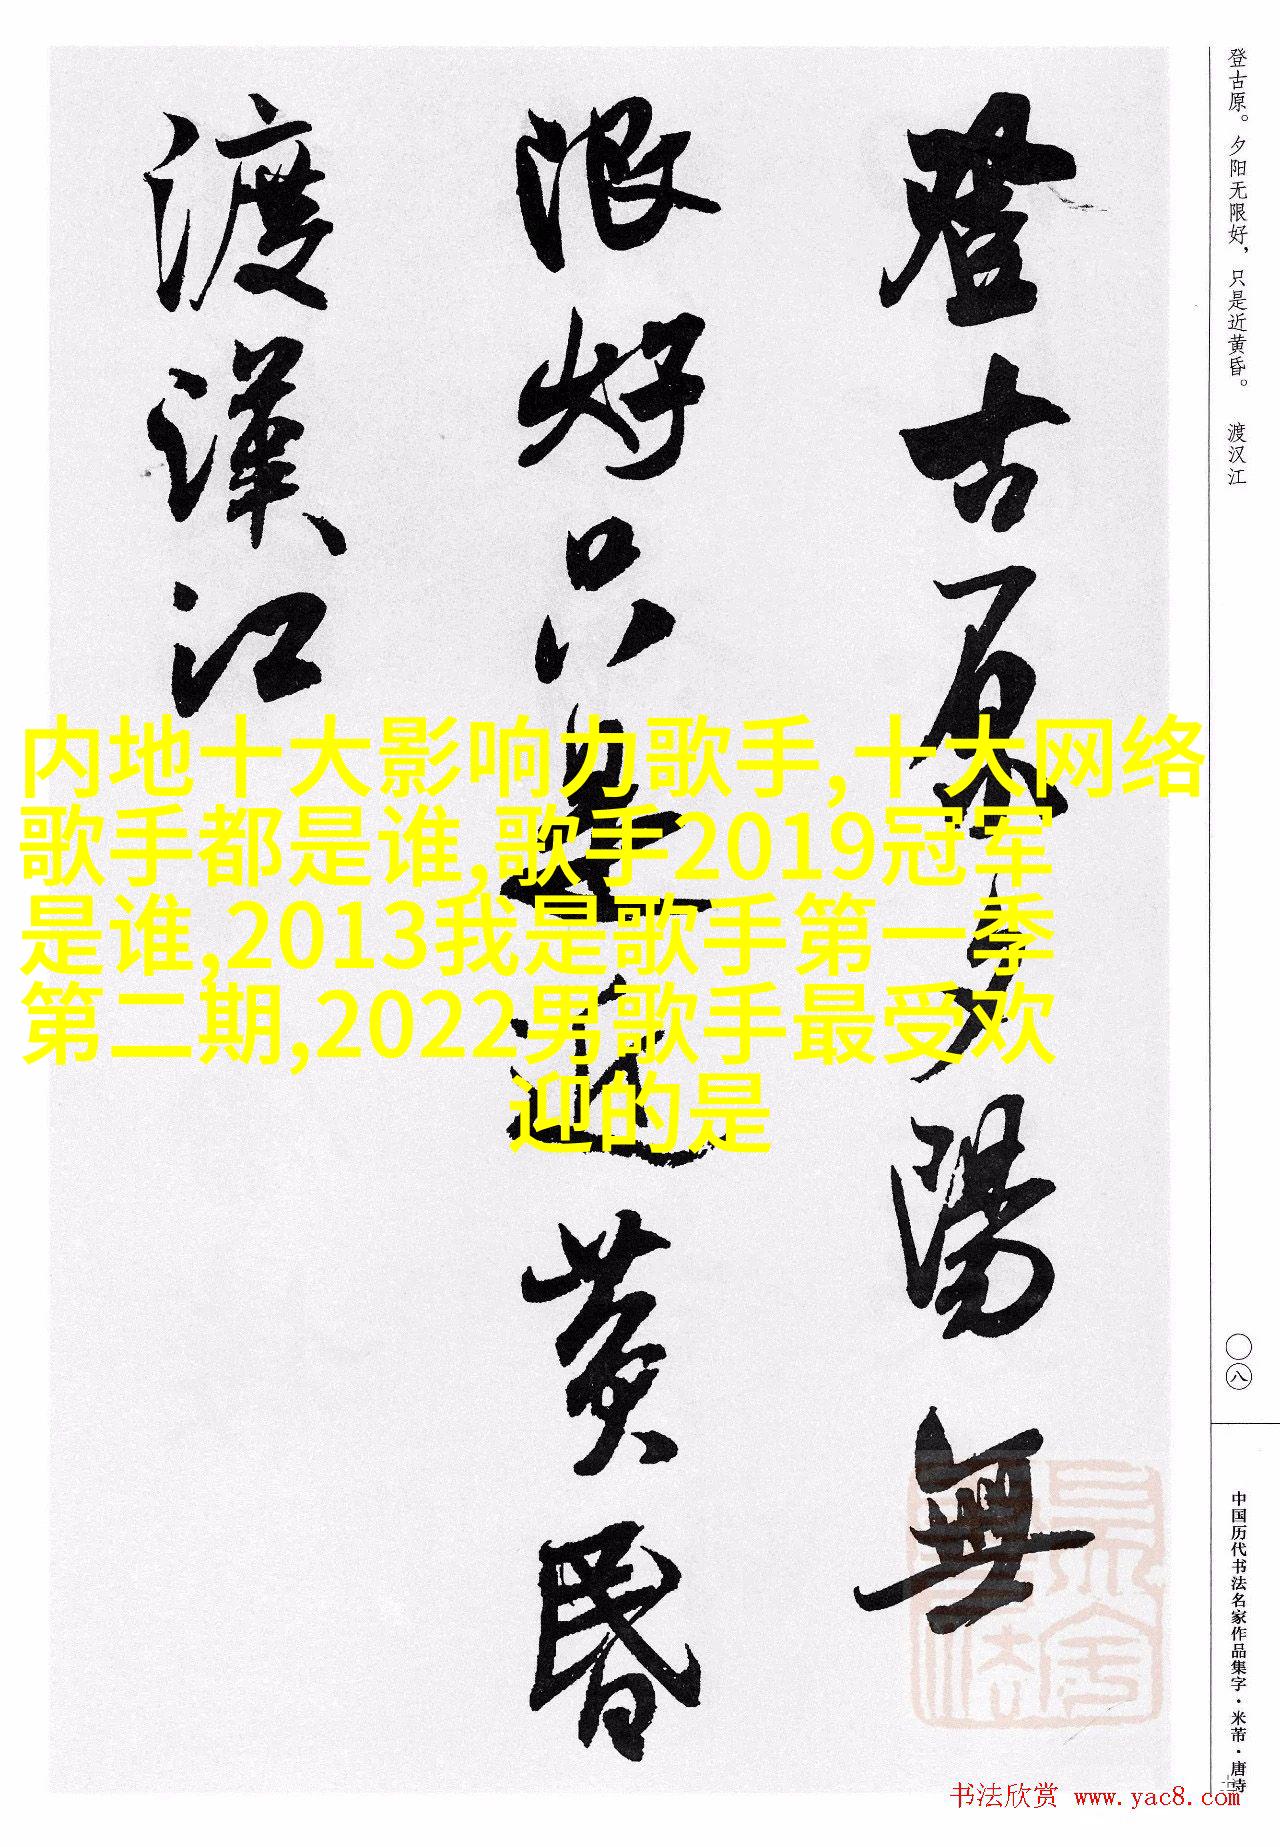 登古原夕陽無
限好只是近黄昏
渡漢江
登古原。夕阳无限好，只是近黄昏。 渡汉江
〇八
中国历代书法名家作品集字·米芾·唐诗
内地十大影响力歌手,十大网络
歌手都是谁,歌手2019冠军
是谁,2013我是歌手第一季
第二期,2022男歌手最受欢
迎的是
书法欣赏 www.yac8.com